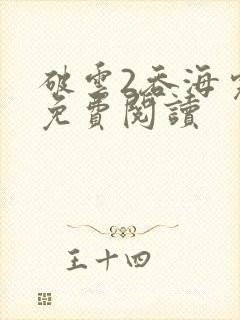 破雲2吞海
免費閱讀
王十四